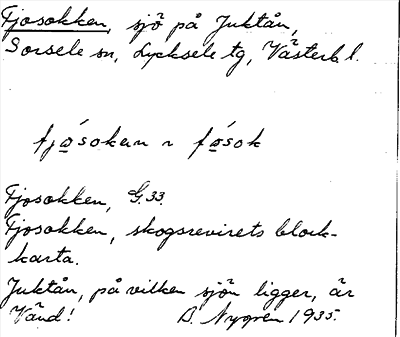 Fjosokken, sjö på Juktån,
Sorsele sn, Lycksele tg, Västerb l.
fjo̲´sokɐn r fo̲´sok
Fjosokken, G. 33.
Fjosokken, skogsrevirets block-
karta.
Juktån, på vilken sjön ligger, är
Vänd! B. Nygren 1935.